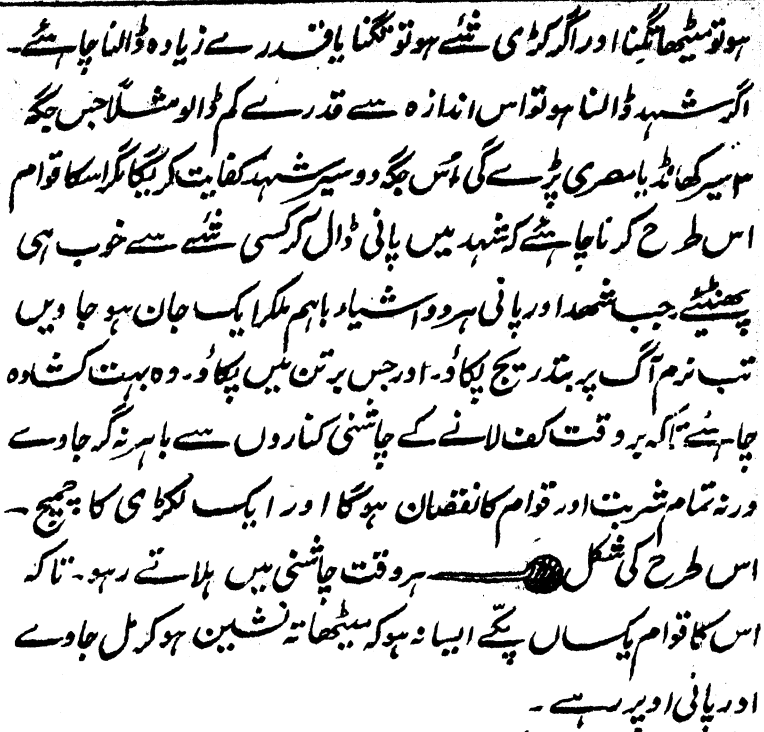 ہو تو میٹھا تگنا اور اگر کڑی شئے ہو تو تگنا یا قدرے زیادہ ڈالنا چاہئے۔
اگر شہد ڈالنا ہو تو اس اندازہ سے قدرے کم ڈالو مثلاً جس جگہ
۳ سیر کھانڈ یا مصری پڑے گی اُس جگہ دو سیر شہد کفایت کریگا مگر اسکا قوام
اس طرح کرنا چاہئے کہ شہد میں پانی ڈال کر کسی شئے سے خوب ہی
پھنٹیئے جب شہد اور پانی ہر دو اشیاء باہم ملکر ایک جان ہو جاویں
تب نرم آگ پر بتدریج پکاؤ۔ اور جس برتن میں پکاؤ۔ وہ بہت کشادہ
چاہئے تاکہ بروقت کف لانے کے چاشنی کناروں سے باہر نہ گر جاوے
ورنہ تمام شربت اور قوام کا نقصان ہوگا اور ایک لکڑی کا چمچ۔
اس طرح کی شکل ہر وقت چاشنی میں ہلاتے رہو۔ تا کہ
اس کا قوام یکساں پکے ایسا نہ ہو کہ میٹھا تہ نشین ہو کر مل جاوے
اور پانی اوپر رہے۔